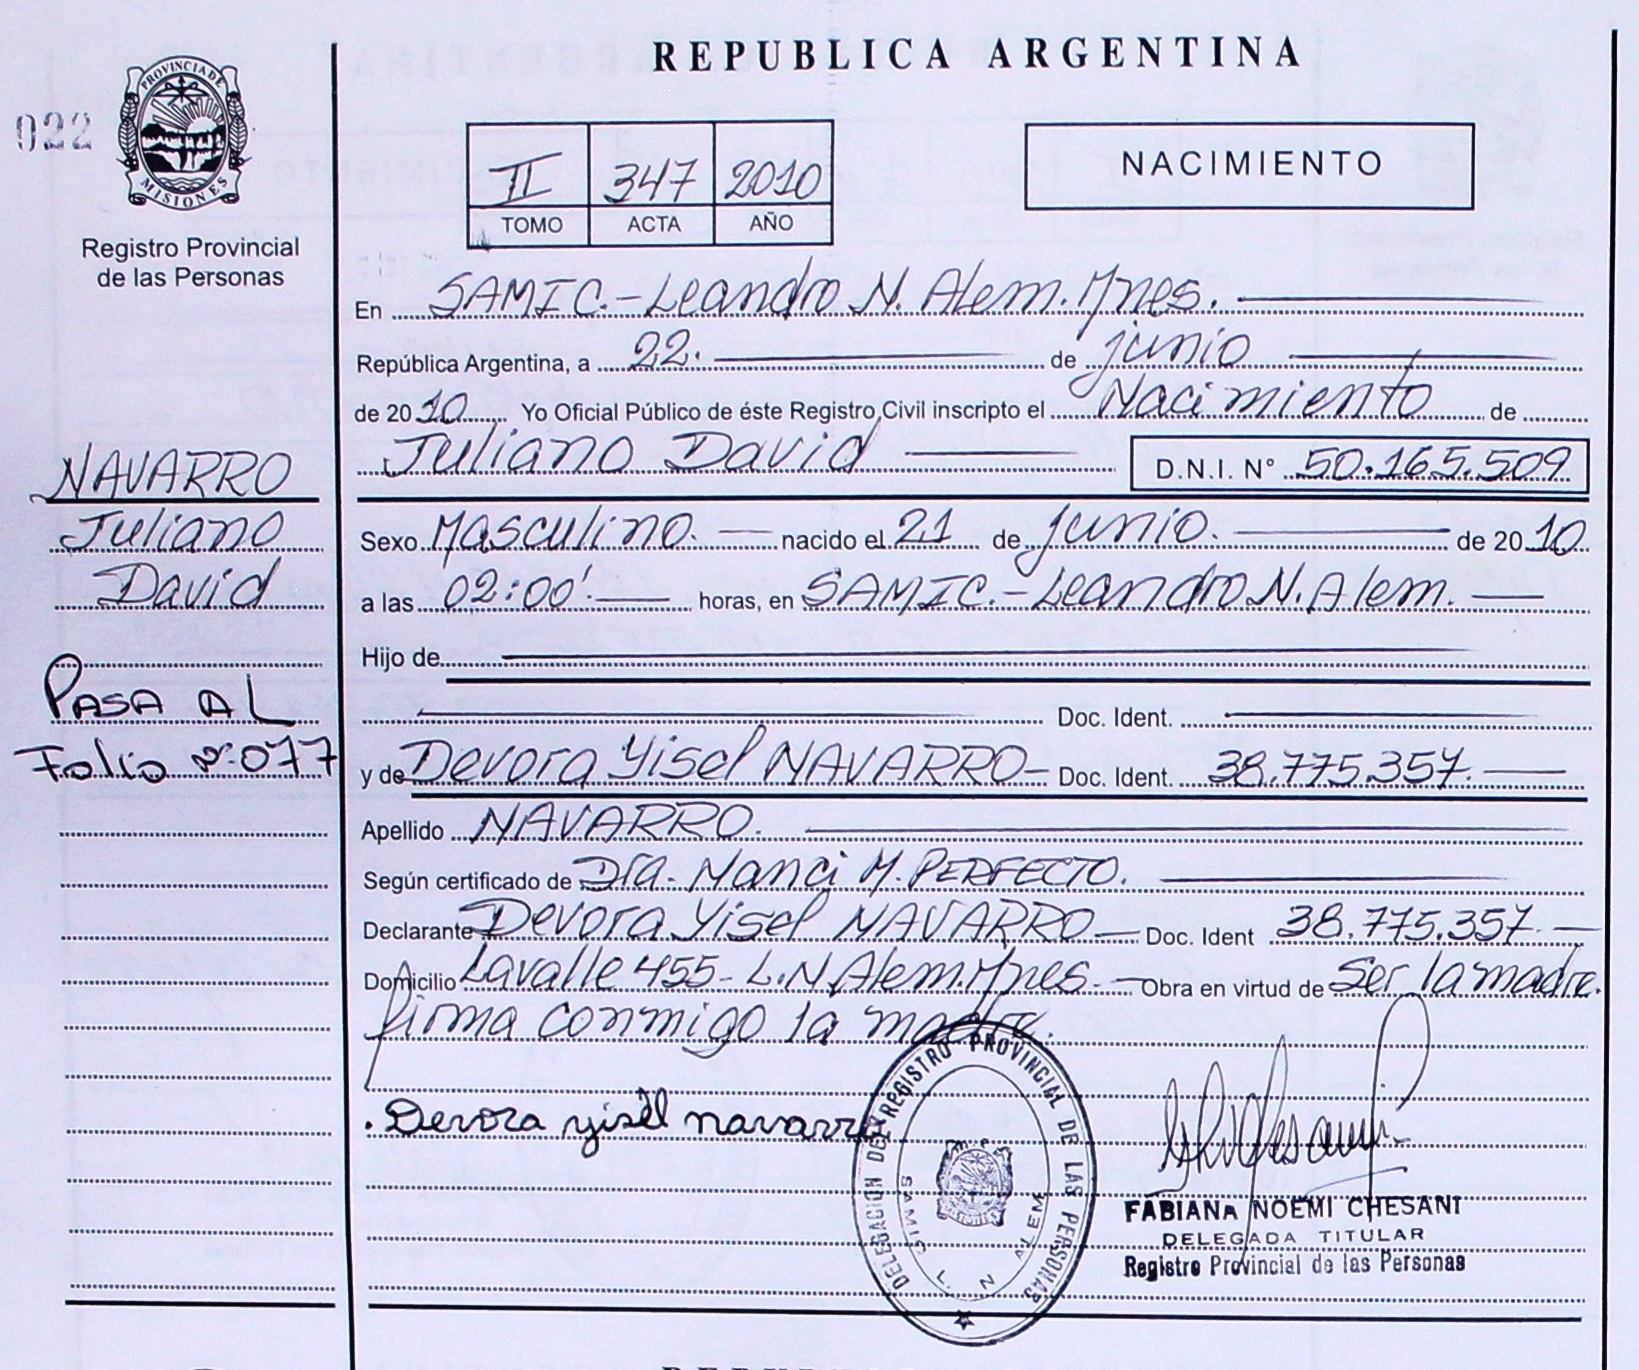 REPUBLICA ARGENTINA
022
PROVINCIA DE
MISIONES
Registro Provincial
de las Personas
II 347 2010
TOMO ACTA AÑO
NACIMIENTO
En SAMIC.-Leandro N. Alem.Mnes.
República Argentina, a 22. de junio
de 2010 Yo Oficial Público de éste Registro Civil inscripto el Nacimiento de
Juliano David D.N.I. N° 50.165.509
NAVARRO
Juliano
David
Sexo Masculino. nacido el 21 de junio. de 2010
a las 02:00'. horas, en SAMIC.-Leandro N. Alem.
Hijo de
Doc. Ident.
PASA AL
Folio Nº 077
y de Devora Yisel NAVARRO Doc. Ident. 38.775.357.
Apellido NAVARRO.
Según certificado de Dra. Nanci M. PERFECTO.
Declarante Devora Yisel NAVARRO Doc. Ident 38.775.357.
Domicilio Lavalle 455- L.N.Alem.Mnes. Obra en virtud de Ser la madre.
firma conmigo la madre.
. Devora yisel navarro
DELEGACION DEL REGISTRO PROVINCIAL DE LAS PERSONAS
SAMIC L. N ALEM
FABIANA NOEMI CHESANI
DELEGADA TITULAR
Registro Provincial de las Personas